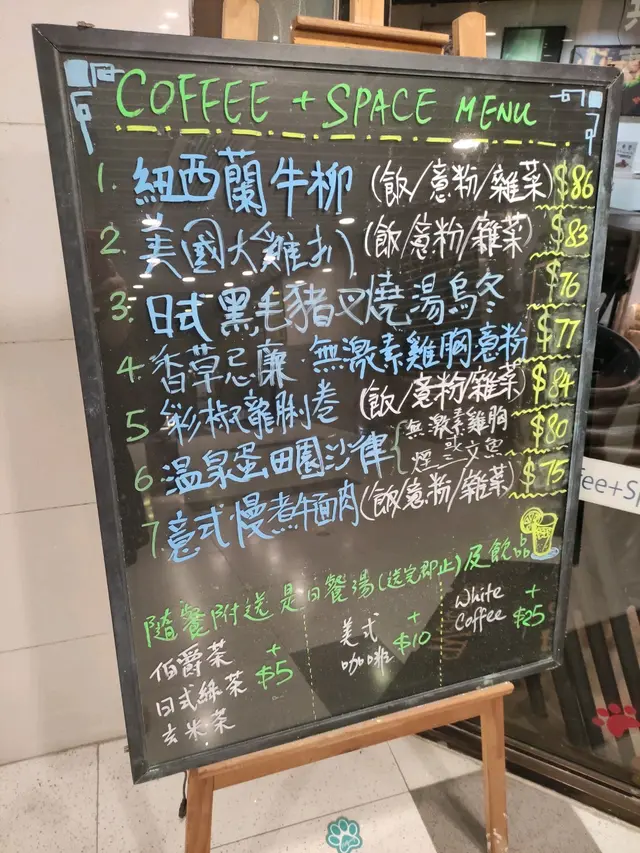 COFFEE + SPACE MENU
1. 紐西蘭牛柳 (飯/意粉/雜菜) $86
2. 美國大雞扒 (飯/意粉/雜菜) $83
3. 日式黑毛豬叉燒湯烏冬 $76
4. 香草忌廉 無激素雞胸意粉 $77
5 彩椒龍脷卷 (飯/意粉/雜菜) $84
6 溫泉蛋田園沙律 { 無激素雞胸 $80
煙三文魚
7. 意式慢煮牛面肉 (飯/意粉/雜菜) $75
隨餐附送是日餐湯(送完即止)及飲品
伯爵茶
日式綠茶 + $5
玄米茶
美式咖啡 + $10
White Coffee + $25
fee+Sp